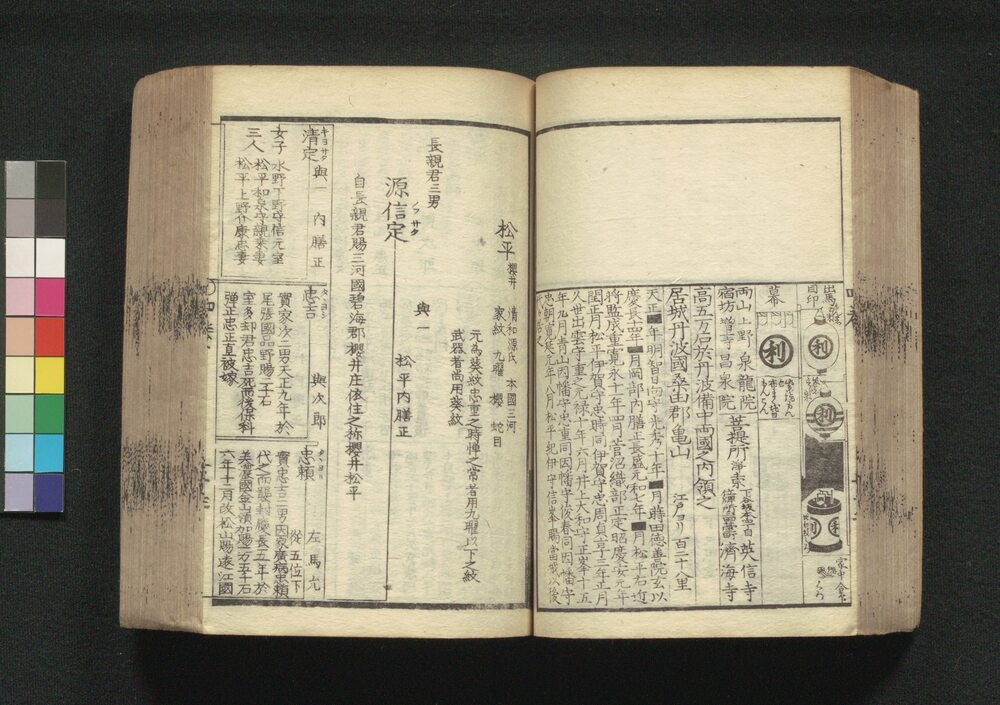 出馬
自印
幕
利
利
利
利
利
両山上野泉龍院
宿坊増寺昌泉院
菩提所
英信寺
濟海寺
高五万石於丹波備中両國之内領之
居城丹波國桑田郡亀山
江戸ヨリ百二十八里
天正
年明智日向守光秀
十年
月蒔田徳善院玄以
慶長
年
月岡部内膳正長盛元和七年
月松平右近
将監成重寛永十一年四月菅沼織部正定昭慶安元年
閏正月松平伊賀守忠晴同伊賀守忠周貞享三年正月
久世出雲守重之元禄十年六月井上大和守正岑十五
年九月青山因幡守忠重同因幡守俊春同因幡守
忠朝寛延元年八月松平紀伊守信岑賜當城以後
松平
櫻井
清和源氏
本國三河
家紋
九曜
櫻
蛇目
元為葵紋忠重之時憚之常者用九曜以下之紋
武器者尚用葵紋
長親君三男
源信定
ノブサダ
與一
松平内膳正
自長親君賜三河國碧海郡櫻井庄依住之称櫻井松平
清定
キヨサダ
與一
内膳正
女子
水野下野守信元室
三人
松平和泉守親乗妻
松平上野介康忠妻
忠吉
與次郎
實家次二男天正九年於
尾張國品野賜二千石
室多却君忠吉死而後保科
弾正忠正直被嫁
忠頼
左馬允
從五位下
實忠吉二男因家廣病忠頼
代之而襲封慶長五年於
美濃國金山領加賜二万五千石
六年十二月改松山賜遠江國